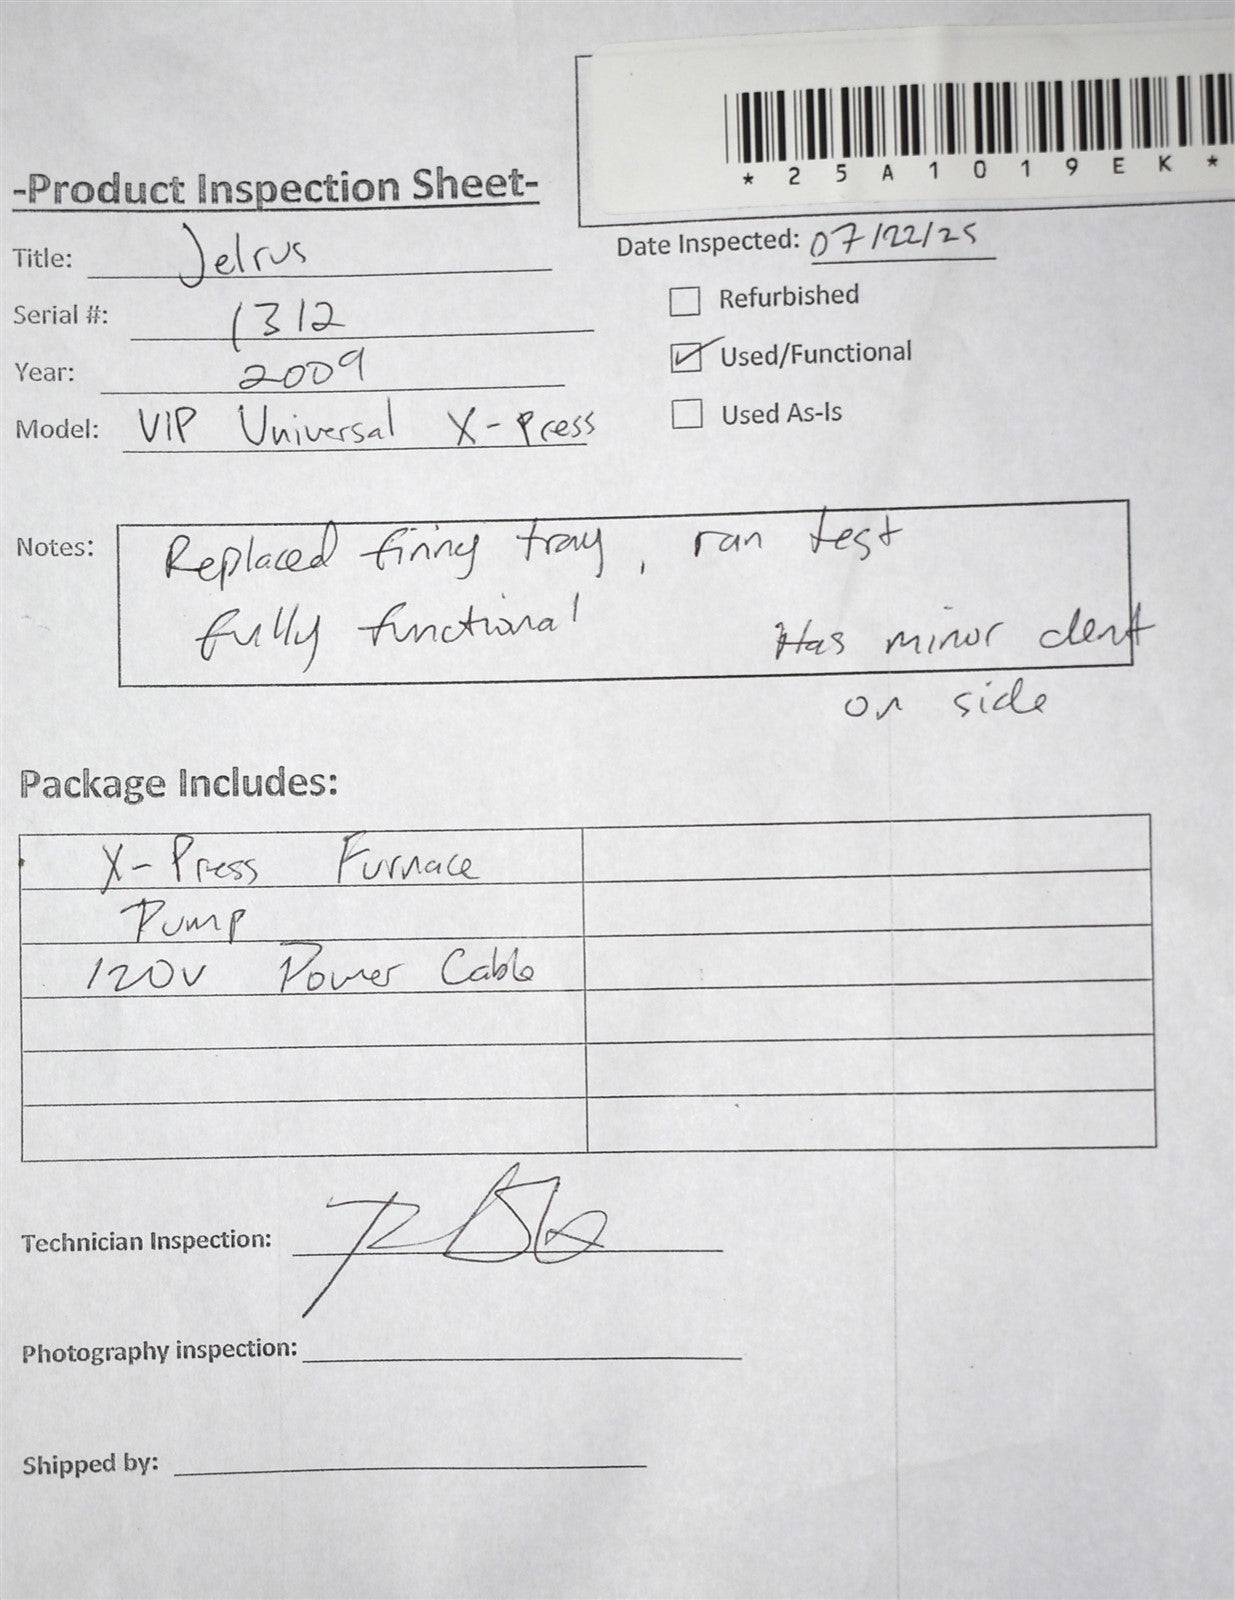 * 2 5 A 1 0 1 9 E K *
-Product Inspection Sheet-
Title: Jelrus
Date Inspected: 07/22/25
Serial #: 1312
Refurbished
Year: 2009
Used/Functional
Model: VIP Universal X-Press
Used As-Is
Notes: Replaced firing tray, ran test
fully functional
Has minor dent
on side
Package Includes:
X-Press Furnace
Pump
120v Power Cable
Technician Inspection:
Photography inspection:
Shipped by: